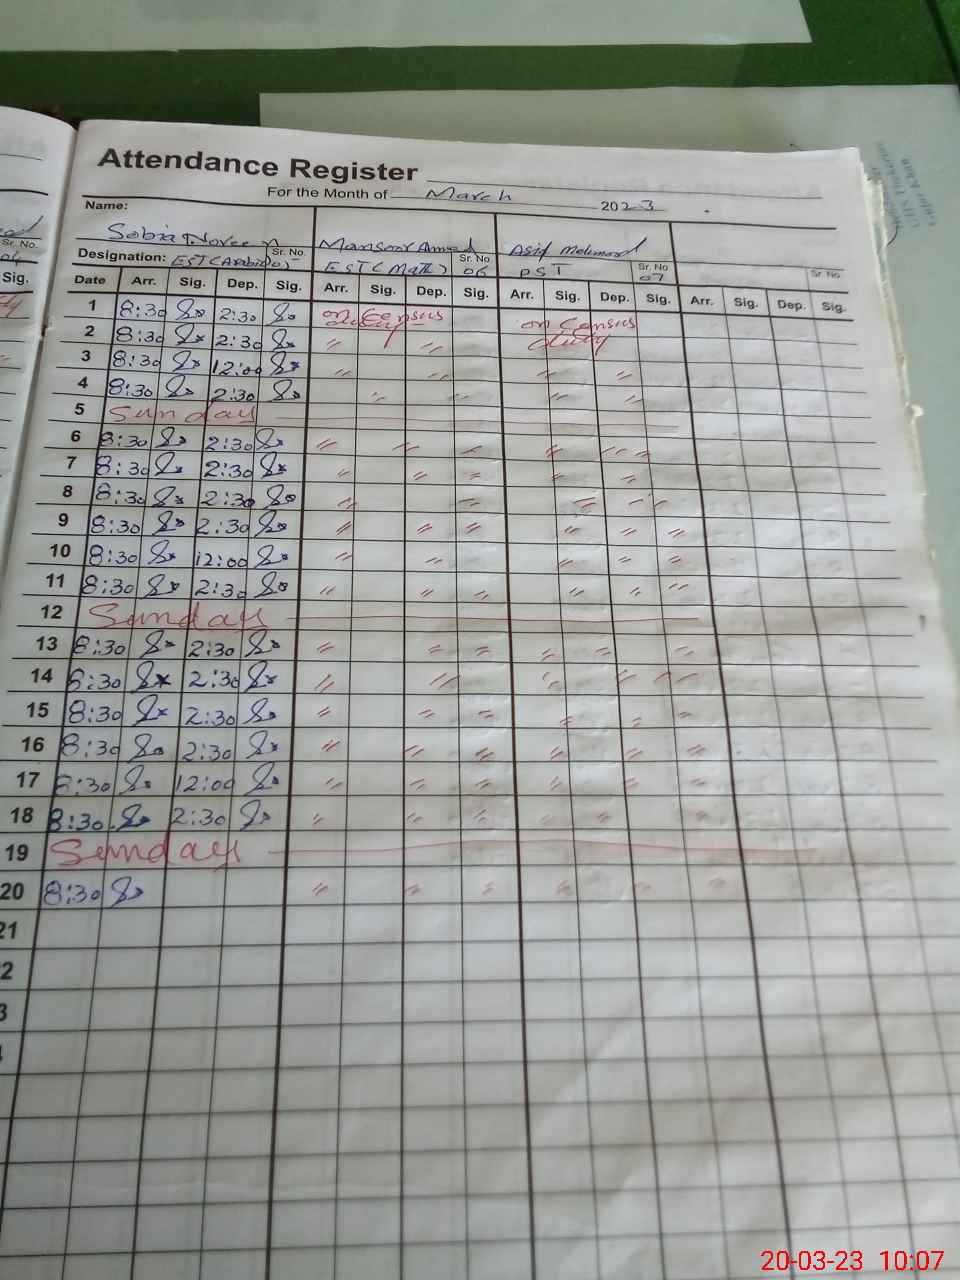 Attendance Register
For the Month of March 2023
Name:
Sobia Noreen Mansoor Ahmed Asif Mehmood
Sr. No. Sr. No. Sr. No. Sr. No. Sr. No.
Designation: EST (Arabic) 05 EST (Math) 06 PST 07
04
Sig. Date Arr. Sig. Dep. Sig. Arr. Sig. Dep. Sig. Arr. Sig. Dep. Sig. Arr. Sig. Dep. Sig.
1 8:30 2:30 on census duty on census duty
2 8:30 2:30 〃 〃
3 8:30 12:00 〃 〃 〃 〃
4 8:30 2:30 〃 〃 〃 〃
5 Sunday
6 8:30 2:30 〃 〃 〃 〃 〃 〃
7 8:30 2:30 〃 〃 〃 〃 〃
8 8:30 2:30 〃 〃 〃 〃 〃
9 8:30 2:30 〃 〃 〃 〃 〃 〃
10 8:30 12:00 〃 〃 〃 〃 〃
11 8:30 2:30 〃 〃 〃 〃 〃 〃
12 Sunday
13 8:30 2:30 〃 〃 〃 〃 〃 〃
14 8:30 2:30 〃 〃 〃 〃 〃
15 8:30 2:30 〃 〃 〃 〃 〃 〃
16 8:30 2:30 〃 〃 〃 〃 〃 〃
17 8:30 12:00 〃 〃 〃 〃 〃 〃
18 8:30 2:30 〃 〃 〃 〃 〃 〃
19 Sunday
20 8:30 〃 〃 〃 〃 〃 〃
21
2
3
20-03-23 10:07